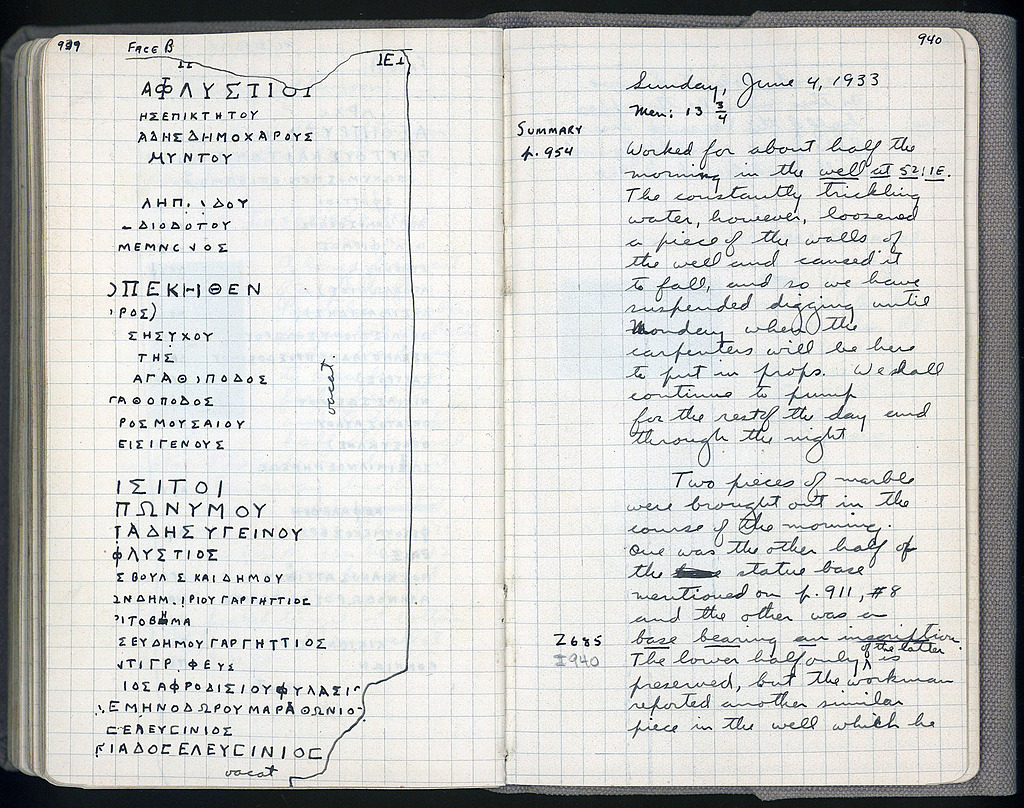 939
FACE B
ΙΕΙ
ΑΦΛΥΣΤΙΟΙ
ΗΣΕΠΙΚΤΗΤΟΥ
ΑΔΗΣΔΗΜΟΧΑΡΟΥΣ
ΜΥΝΤΟΥ
ΛΗΠ.ΙΔΟΥ
ΔΙΟΔΟΤΟΥ
ΠΕΚΗΘΕΝ
ΡΟΣ)
ΣΗΣΥΧΟΥ
ΤΗΣ
vacat.
ΑΓΑΘΙΠΟΔΟΣ
ΓΑΘΟΠΟΔΟΣ
ΡΟΣΜΟΥΣΑΙΟΥ
ΕΙΣΙΓΕΝΟΥΣ
ΙΣΙΤΟΙ
ΠΩΝΥΜΟΥ
ΤΑΔΗΣΥΓΕΙΝΟΥ
ΦΛΥΣΤΙΟΣ
ΣΒΟΥΛΣΚΑΙΔΗΜΟΥ
ΝΔΗΜ.ΙΡΙΟΥΓΑΡΓΗΤΤΙΟΣ
ΙΤΟΒΗΜΑ
ΣΕΥΔΗΜΟΥΓΑΡΓΗΤΤΙΟΣ
ΝΤΙΓΡ.ΦΕΥΣ
ΙΟΣΑΦΡΟΔΙΣΙΟΥΦΥΛΑΣΙ
ΕΜΗΝΟΔΩΡΟΥΜΑΡΑΘΩΝΙΟ
ϹΕΛΕΥϹΙΝΙΟΣ
ΙΑΔΟϹΕΛΕΥϹΙΝΙΟϹ
vacat
940
Sunday, June 4, 1933
Men: 13 3/4
SUMMARY
p. 954
Worked for about half the
morning in the well at 52:IE.
The constantly trickling
water, however, loosened
a piece of the walls of
the well and caused it
to fall, and so we have
suspended digging until
Monday when the
carpenters will be here
to put in props. We shall
continue to pump
for the rest of the day and
through the night
Two pieces of marble
were brought out in the
course of the morning.
One was the other half of
the statue base
mentioned on p. 911, #8
and the other was a
Σ685
I940
base bearing an inscription.
The lower half only of the latter is
preserved, but the workman
reported another similar
piece in the well which he